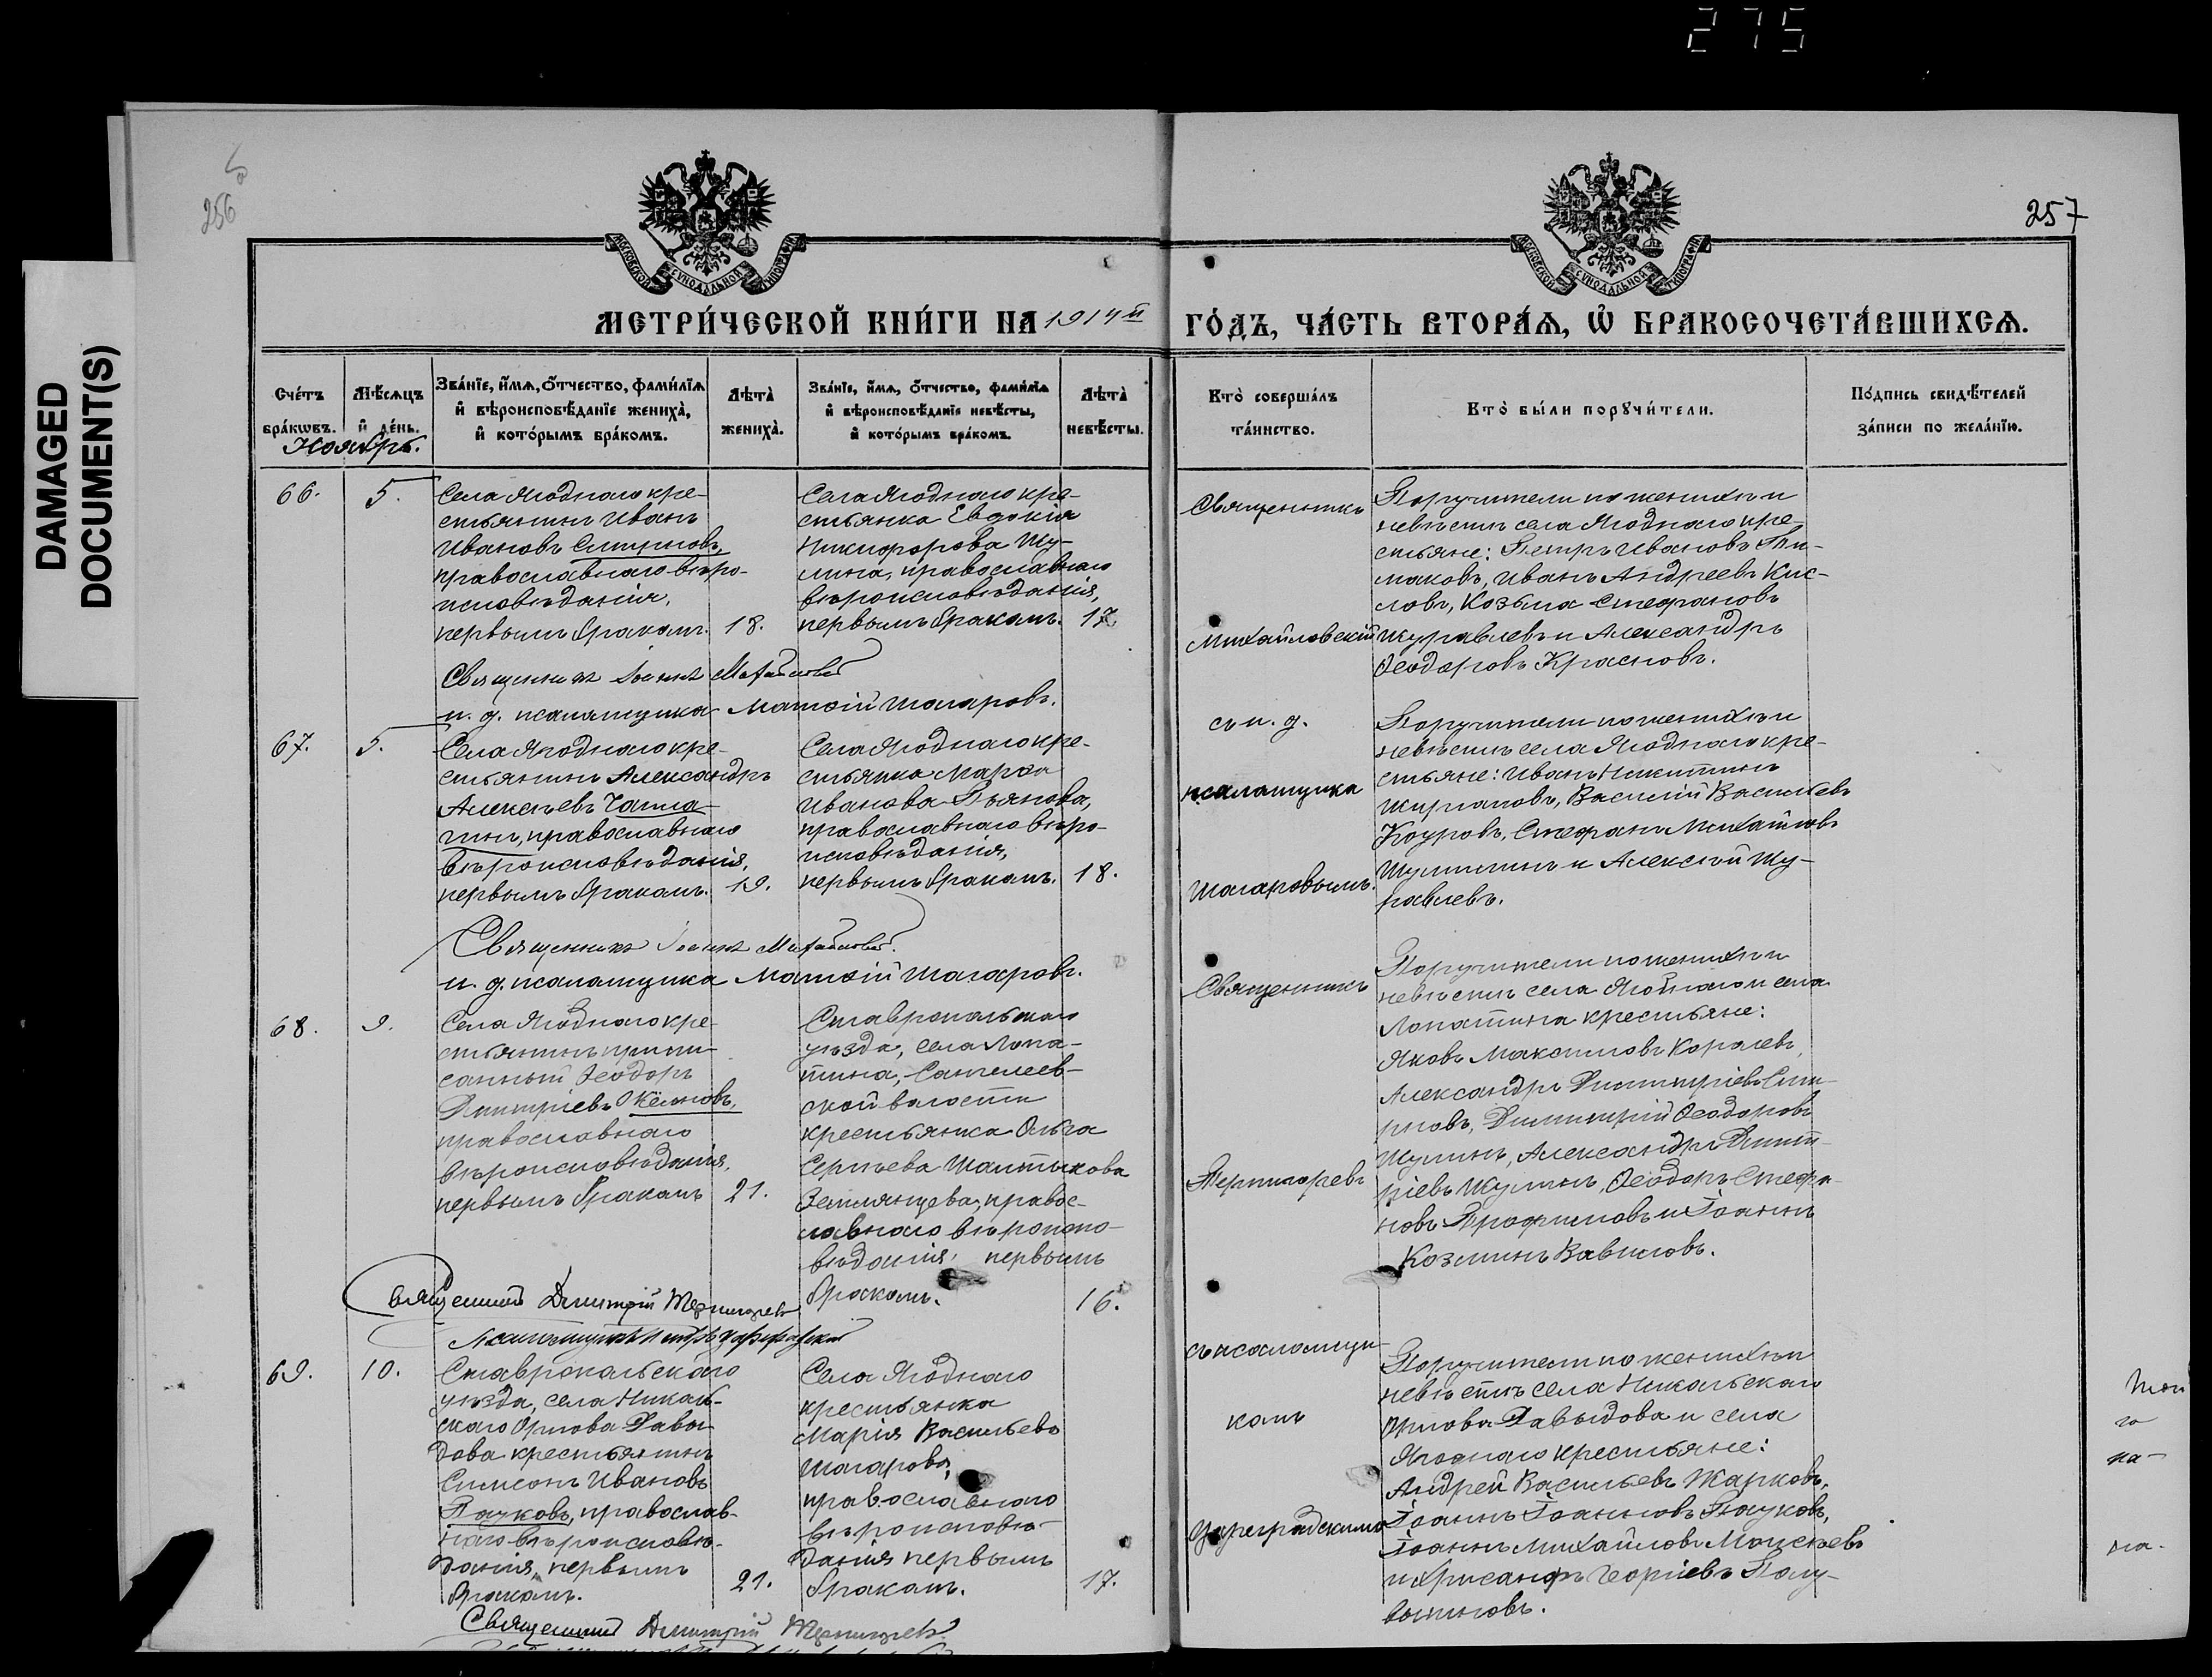 275
DAMAGED
DOCUMENT(S)
256
257
МОСКОВСКОЙ СУНОДАЛЬНОЙ ТИПОГРАФІИ
МОСКОВСКОЙ СУНОДАЛЬНОЙ ТИПОГРАФІИ
МЕТРИ́ЧЕСКОЙ КНИ́ГИ НА 1914й ГО́ДЪ, ЧА́СТЬ ВТОРА́Ѧ, Ѡ҆ БРАКОСОЧЕТА́ВШИХСѦ.
Сче́тъ
бра́кѡвъ.
Мѣ́сяцъ
и҆ де́нь.
Зва́нїе, и҆́мѧ, ѻ҆́тчество, фами́лїѧ
и҆ вѣроисповѣ́данїе жениха̀,
и҆ кото́рымъ бра́комъ.
Лѣта̀
жениха̀.
Зва́нїе, и҆́мѧ, ѻ҆́тчество, фами́лїѧ
и҆ вѣроисповѣ́данїѧ невѣ́сты,
и҆ кото́рымъ бра́комъ.
Лѣта̀
невѣ́сты.
Кто̀ соверша́лъ
та́инство.
Кто̀ бы́ли порꙋчи́тели.
По́дпись свидѣ́телей
за́писи по жела́нїю.
Ноябрь.
66.
5.
Села Ягоднаго кре-
стьянинъ Иванъ
Ивановъ Смирновъ,
православнаго вѣро-
исповѣданія,
первымъ бракомъ.
18.
Села Ягоднаго кре-
стьянка Евдокія
Никифорова Шу-
лина, православнаго
вѣроисповѣданія,
первымъ бракомъ.
17.
Священникъ
Михайловскій
Поручители по женихѣ и
невѣстѣ села Ягоднаго кре-
стьяне: Петръ Ивановъ Ти-
маковъ, Иванъ Андреевъ Кис-
ловъ, Козьма Стефановъ
Журавлевъ и Александръ
Ѳеодоровъ Красновъ.
Священникъ Іоаннъ Михайловскій
и. д. псаломщика Матѳій Шагаровъ.
67.
5.
Села Ягоднаго кре-
стьянинъ Александръ
Алексѣевъ Чапла-
гинъ, православнаго
вѣроисповѣданія,
первымъ бракомъ.
19.
Села Ягоднаго кре-
стьянка Марѳа
Иванова Пьянова,
православнаго вѣро-
исповѣданія,
первымъ бракомъ.
18.
съ и. д.
псаломщика
Шагаровымъ.
Поручители по женихѣ и
невѣстѣ села Ягоднаго кре-
стьяне: Иванъ Никитинъ
Василій Васильевъ
Стефанъ Михайловъ
и Алексѣй Жу-
равлевъ.
Священникъ Іоаннъ Михайловскій.
и. д. псаломщика Матѳій Шагаровъ.
68.
9.
Села Ягоднаго кре-
стьянинъ припи-
санный Ѳеодоръ
Димитріевъ
православнаго
вѣроисповѣданія,
первымъ бракомъ
21.
Ставропольскаго
уѣзда, села Лопа-
тина, Санчелеев-
ской волости
крестьянка Ольга
Сергѣева Шалтыкова
Землянцева, правос-
лавнаго вѣроиспо-
вѣданія, первымъ
бракомъ.
16.
Священникъ
Терпигоревъ
Поручители по женихѣ и
невѣстѣ села Ягоднаго и села
Лопатина крестьяне:
Яковъ Максимовъ Королевъ,
Александръ Димитріевъ Сми-
рновъ, Димитрій Ѳеодоровъ
Шулинъ, Александръ Димит-
ріевъ Шулинъ, Ѳеодоръ Стефа-
новъ Трофимовъ и Іоаннъ
Козминъ Вавиловъ.
Священникъ Димитрій Терпигоревъ
Псаломщикъ Петръ Цареградскій
69.
10.
Ставропольскаго
уѣзда, села Николь-
скаго Орлова Давы-
дова крестьянинъ
Симеонъ Ивановъ
Пауковъ, православ-
наго вѣроисповѣ-
данія, первымъ
бракомъ.
21.
Села Ягоднаго
крестьянка
Марія Васильева
Шагарова,
православнаго
вѣроисповѣ-
данія первымъ
бракомъ.
17.
съ псаломщи-
комъ
Цареградскимъ
Поручители по женихѣ и
невѣстѣ села Никольскаго
Орлова-Давыдова и села
Ягоднаго крестьяне:
Андрей Васильевъ Жарковъ,
Іоаннъ Іоанновъ Пауковъ,
Іоаннъ Михайловъ Моисѣевъ
и Хрисанѳъ Георгіевъ Голу-
Священникъ Димитрій Терпигоревъ
го
на-